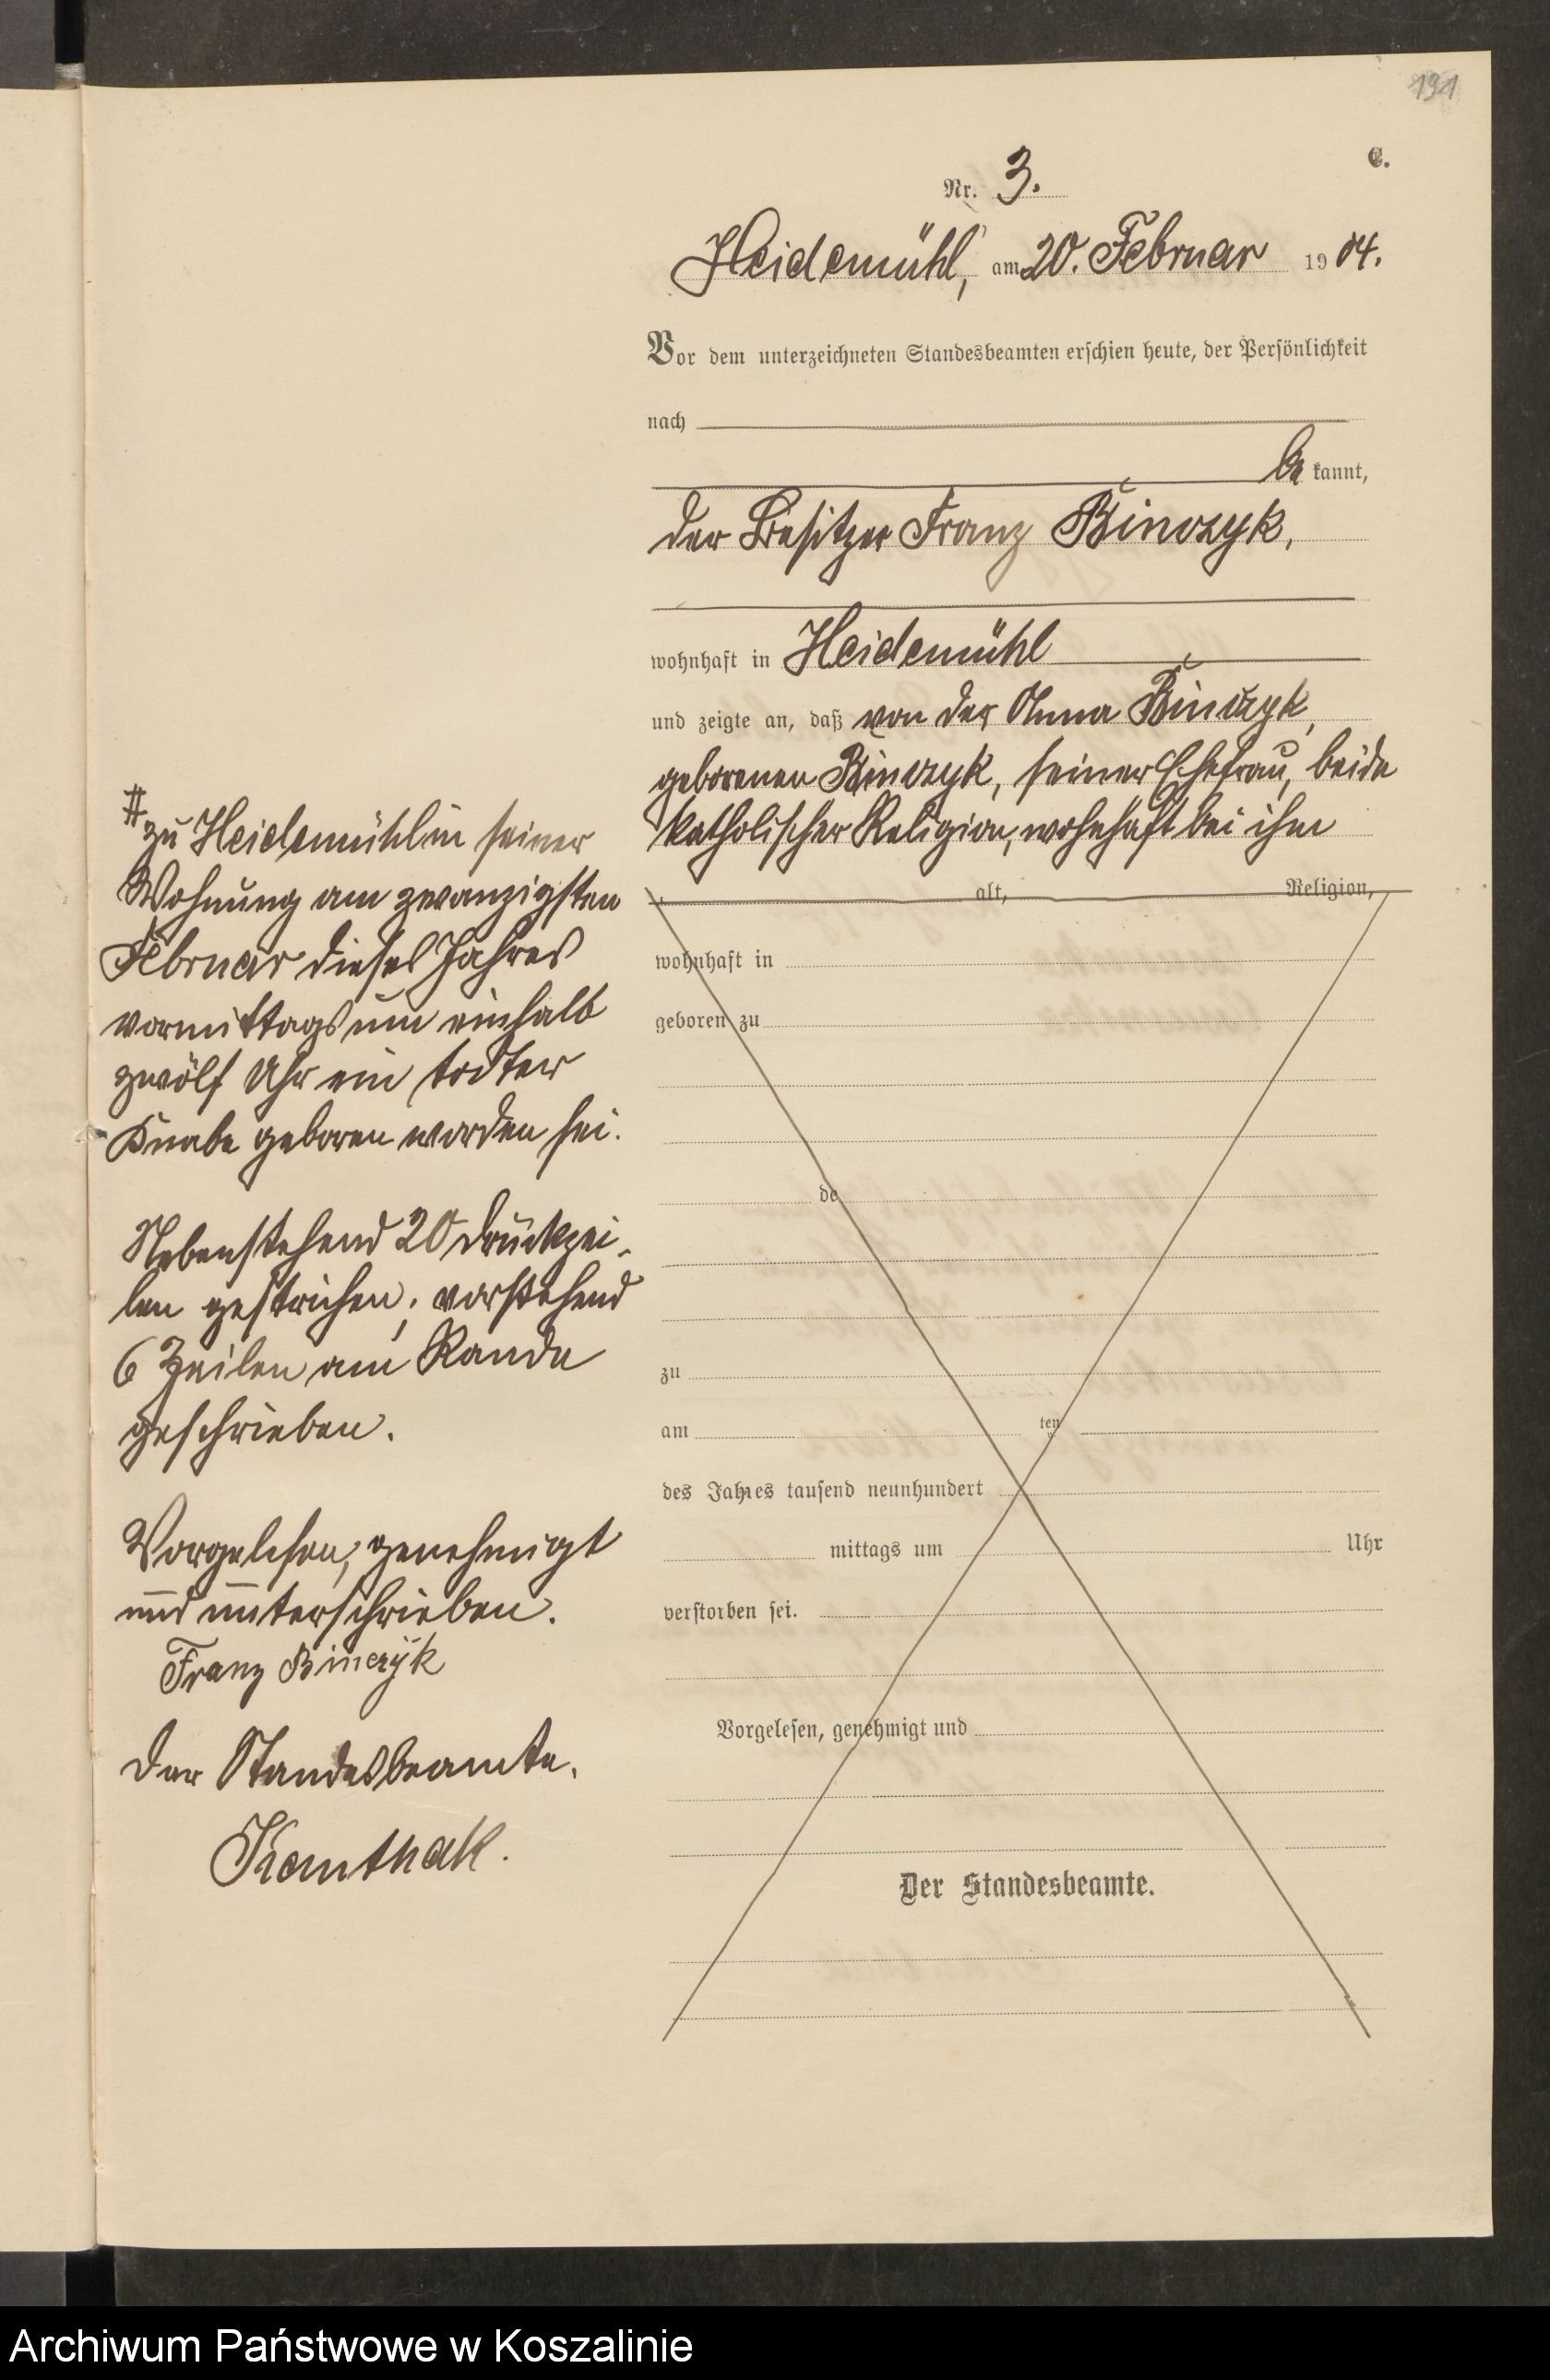 191
C.
Nr. 3.
Heidemühl, am 20. Februar 1904.
Vor dem unterzeichneten Standesbeamten erschien heute, der Persönlichkeit
nach
be kannt,
der Besitzer Franz Binczyk,
wohnhaft in Heidemühl
und zeigte an, daß von der Anna Binczyk,
geborenen Binczyk, seiner Ehefrau, beide
katholischer Religion, wohnhaft bei ihm
alt, Religion,
wohnhaft in
geboren zu
de
zu
am ten
des Jahres tausend neunhundert
mittags um Uhr
verstorben sei.
Vorgelesen, genehmigt und
Der Standesbeamte.
# zu Heidemühl in seiner
Wohnung am zwanzigsten
Februar dieses Jahres
vormittags um einhalb
zwölf Uhr ein todter
Knabe geboren worden sei.
Nebenstehend 20 Druckzei-
len gestrichen; vorstehend
6 Zeilen am Rande
geschrieben.
Vorgelesen, genehmigt
und unterschrieben.
Franz Binczyk
Der Standesbeamte.
Archiwum Państwowe w Koszalinie